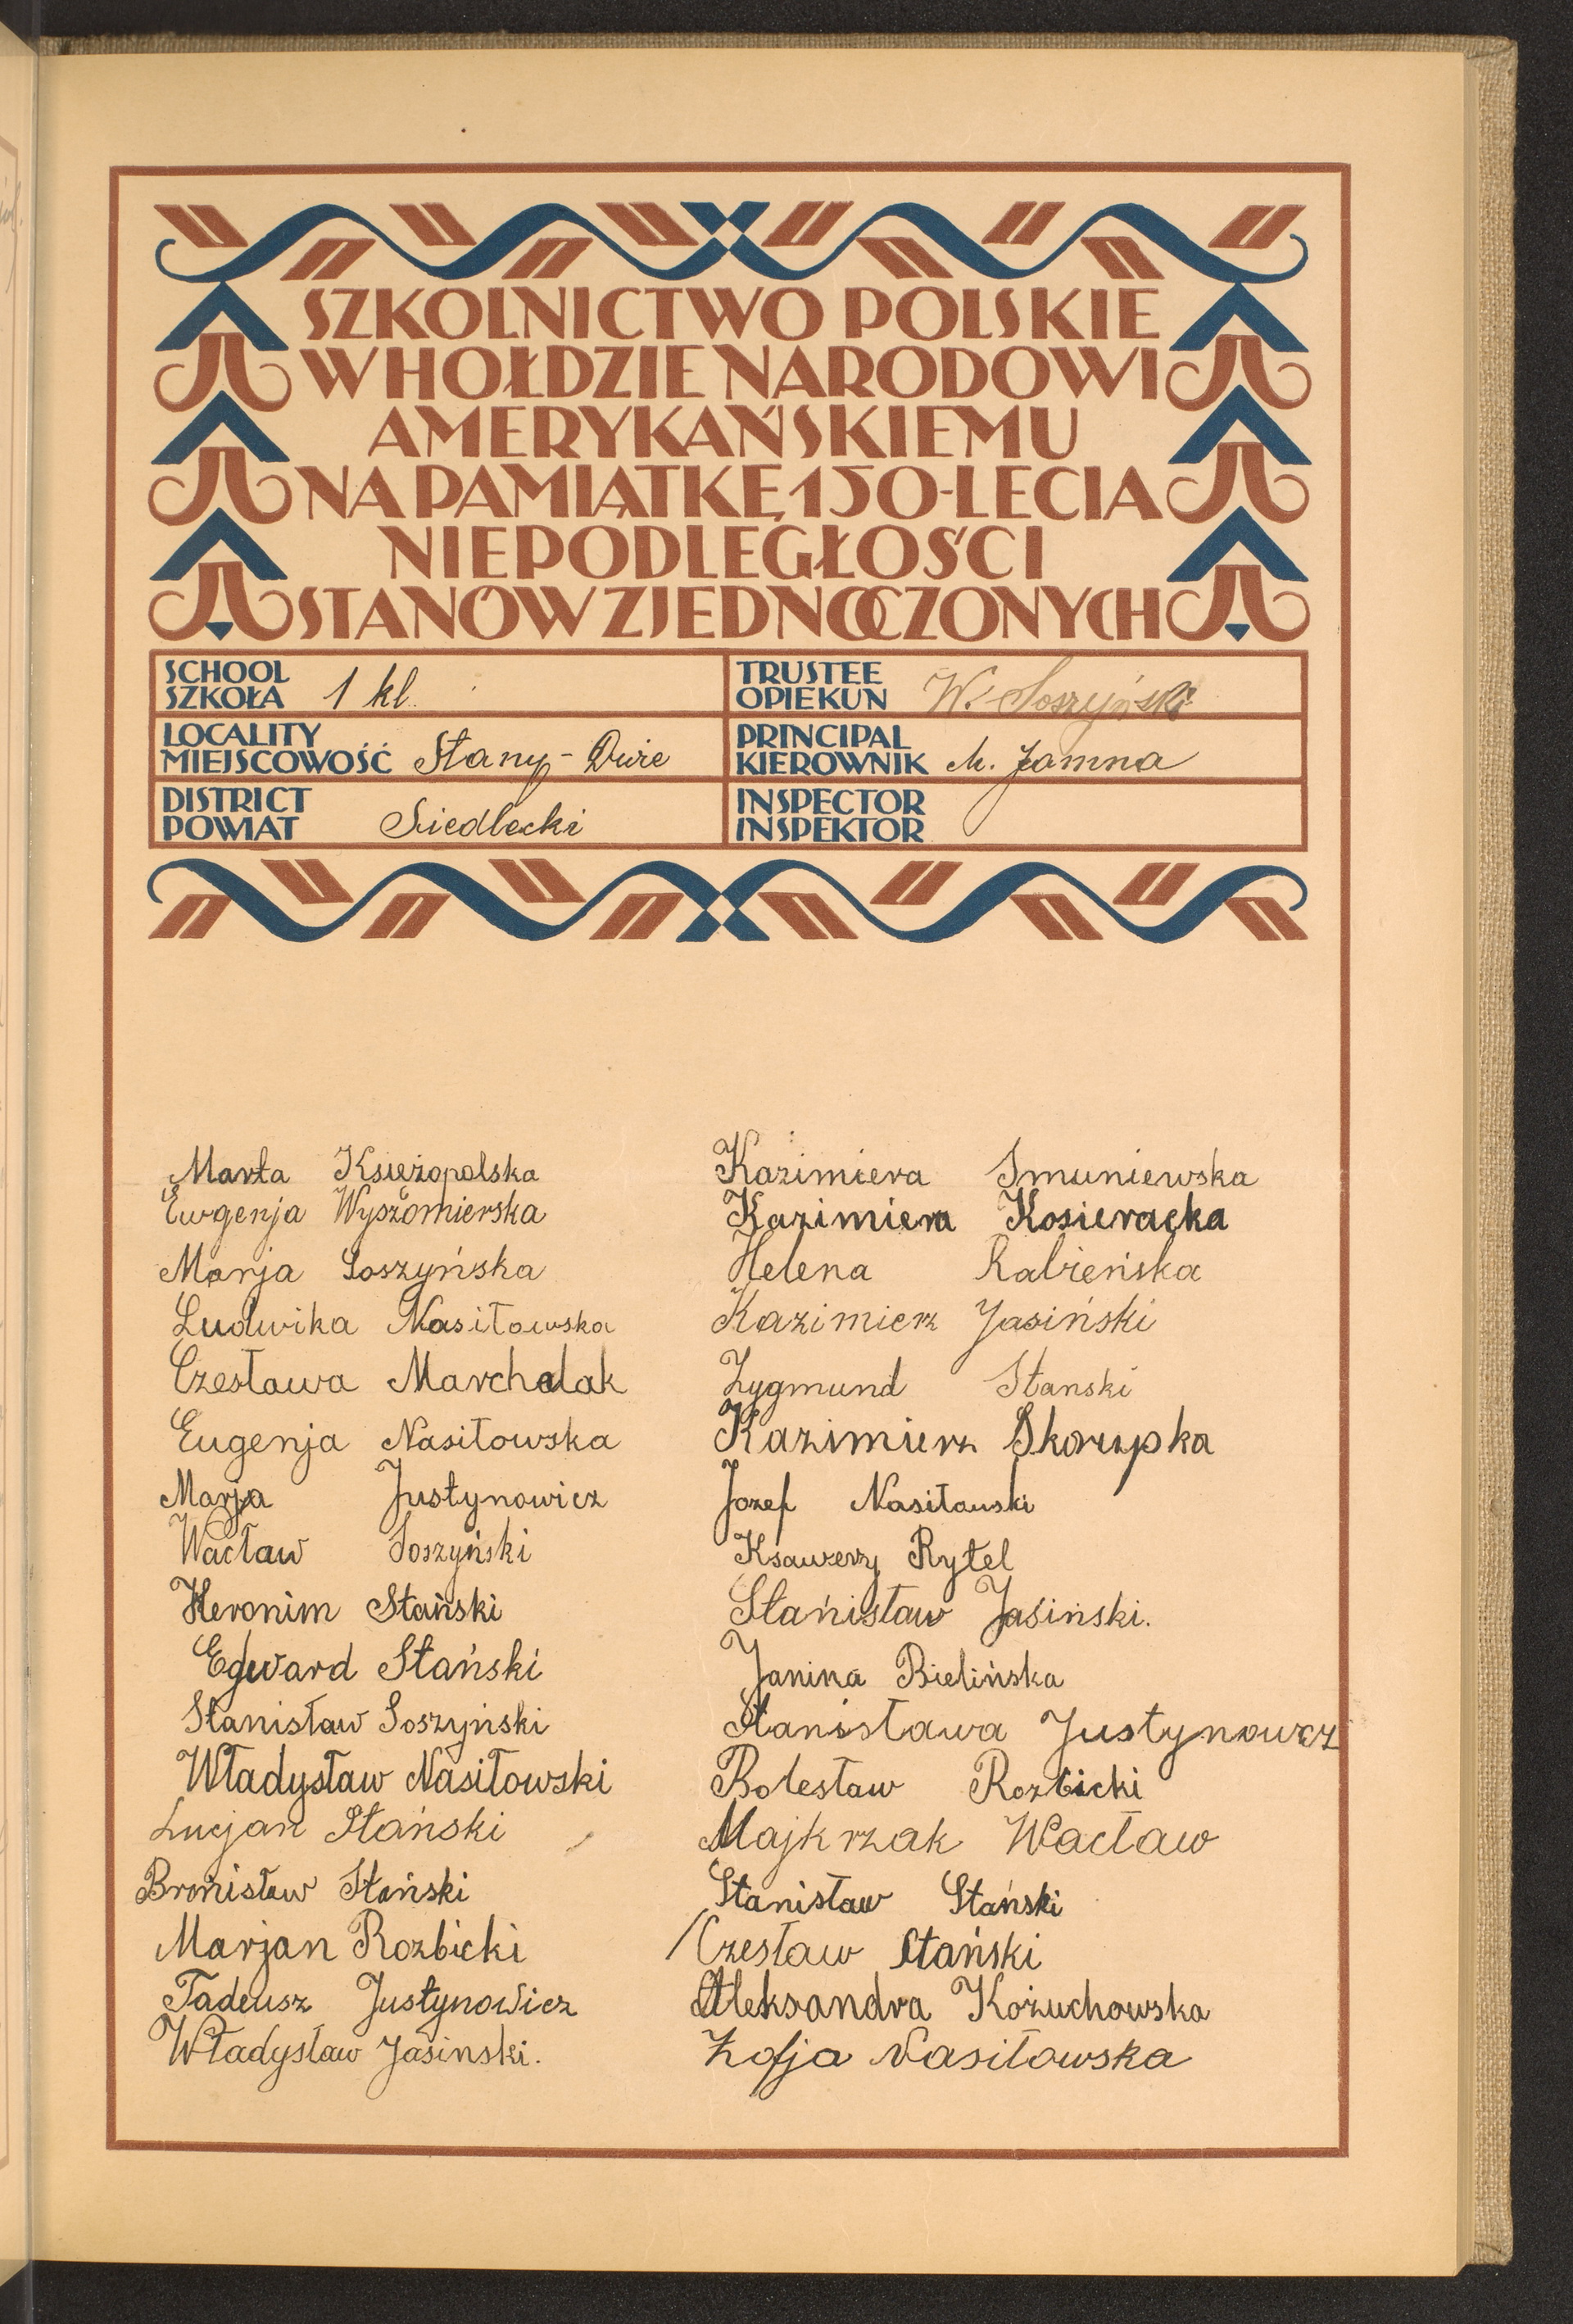 SZKOLNICTWO POLSKIE
W HOŁDZIE NARODOWI
AMERYKAŃSKIEMU
NA PAMIĄTKĘ 150-LECIA
NIEPODLEGŁOŚCI
STANÓW ZJEDNOCZONYCH
SCHOOL
SZKOŁA 1 kl.
TRUSTEE
OPIEKUN W. Soszyński
LOCALITY
MIEJSCOWOŚĆ Stany-Duże
PRINCIPAL
KIEROWNIK M. Jamna
DISTRICT
POWIAT Siedlecki
INSPECTOR
INSPEKTOR
Marta Księżopolska
Ewgenja Wyszomierska
Marja Soszyńska
Ludwika Nasiłowska
Czesława Marchelak
Eugenja Nasiłowska
Marja Justynowicz
Wacław Soszyński
Heronim Stański
Edward Stański
Stanisław Soszyński
Władysław Nasiłowski
Lucjan Stański
Bronisław Stański
Marjan Rozbicki
Tadeusz Justynowicz
Władysław Jasinski.
Kazimiera Smuniewska
Kazimiera Kosieracka
Helena Rabieńska
Kazimierz Jasiński
Zygmund Stanski
Kazimierz Skorupka
Jozef Nasiłowski
Ksawery Rytel
Stanisław Jasiński.
Janina Bielińska
Stanisława Justynowcz
Bolesław Rozbicki
Majkrzak Wacław
Stanisław Stański
Czesław Stański
Aleksandra Kożuchowska
Zofja Nasiłowska